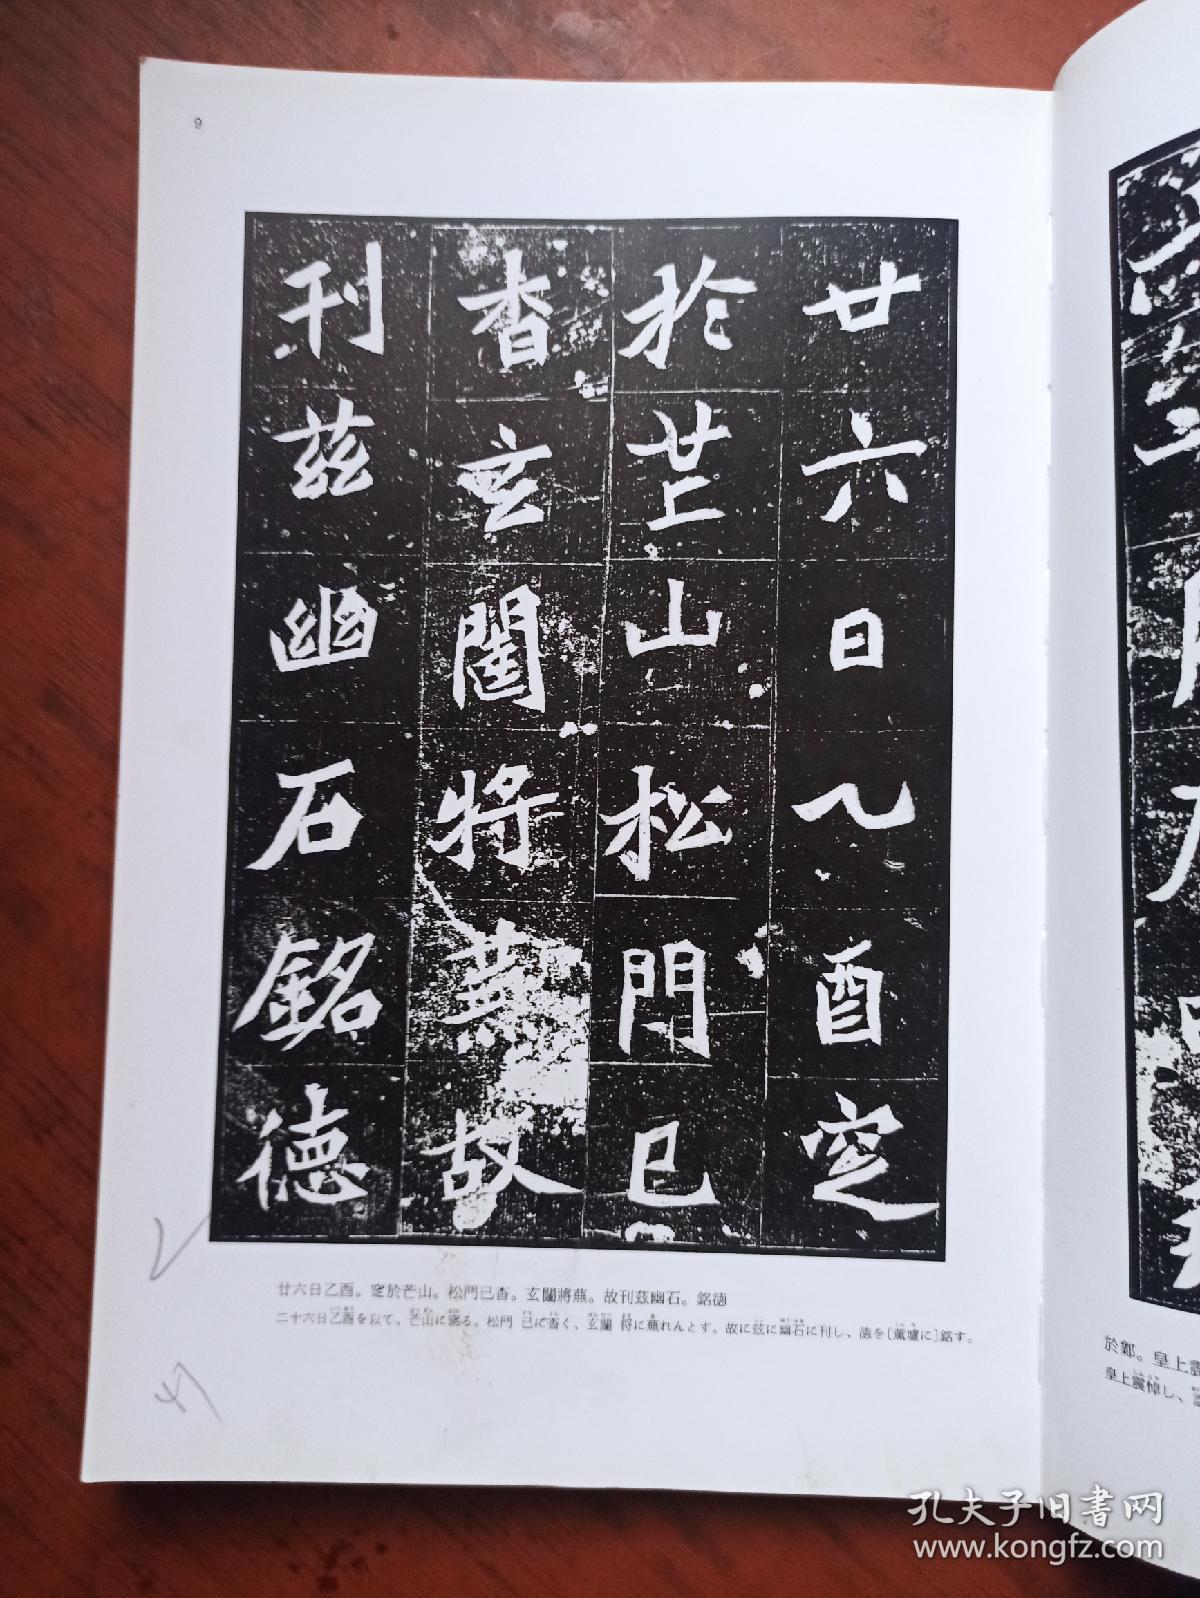 9
廿六日乙酉窆
於芒山松門已
杳玄闥將蕪故
刊茲幽石銘德
廿六日乙酉。窆於芒山。松門已杳。玄闥將蕪。故刊茲幽石。銘德
二十六日乙酉を以て、芒山に窆る。松門 已に杳く、玄闥 將に蕪れんとす。故に茲に幽石に刊し、德を〔薰壚に〕銘す。
於鄴。皇上
皇上震悼し、
孔夫子旧书网
www.kongfz.com